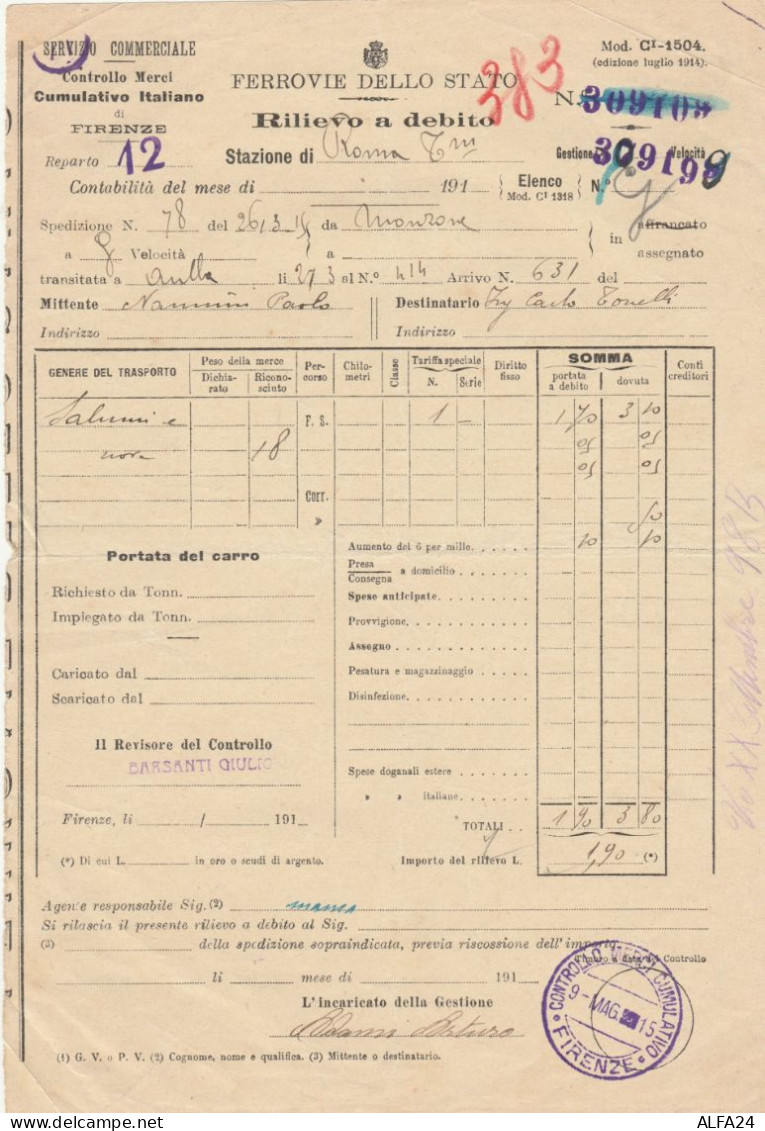 SERVIZIO COMMERCIALE
Controllo Merci
Cumulativo Italiano
di
FIRENZE
Reparto 12
FERROVIE DELLO STATO
Rilievo a debito
383
Mod. CI-1504.
(edizione luglio 1914).
N. 309109
Stazione di Roma Tm
Gestione Velocità
309199
Contabilità del mese di 191
Elenco
Mod. CI 1318
N.º
Spedizione N. 78 del 26/3 15 da Monzone
a g Velocità a
in affrancato
assegnato
transitata a Aulla li 27 3 al N.º 414 Arrivo N. 631 del
Mittente Nannini Paolo Destinatario Ing Carlo Tonelli
Indirizzo Indirizzo
GENERE DEL TRASPORTO
Peso della merce
Dichiarato
Riconosciuto
Percorso
Chilometri
Classe
Tariffa speciale
N. Serie
Diritto fisso
SOMMA
portata a debito
dovuta
Conti creditori
Salumi e F. S. 1 – 1 70 3 10
18 05 05
05 05
Corr.
»
50
Portata del carro
Aumento del 6 per mille 10 10
Presa
Consegna a domicilio
Richiesto da Tonn.
Spese anticipate
Impiegato da Tonn.
Provvigione
Assegno
Caricato dal
Pesatura e magazzinaggio
Scaricato dal
Disinfezione
Il Revisore del Controllo
BARSANTI GIULIO
Spese doganali estere
» » italiane
Firenze, li / 191
TOTALI 1 90 3 80
(*) Di cui L. in oro o scudi di argento.
Importo del rilievo L. 1,90 (*)
Agente responsabile Sig. (2)
Si rilascia il presente rilievo a debito al Sig.
(3) della spedizione sopraindicata, previa riscossione dell'importo.
Timbro a data del Controllo
li mese di 191
L'incaricato della Gestione
Adami Arturo
CONTROLLO MERCI CUMULATIVO
9 - MAG. 15
FIRENZE
(1) G. V. o P. V. (2) Cognome, nome e qualifica. (3) Mittente o destinatario.
Via XX Settembre 98 B
ALFA24